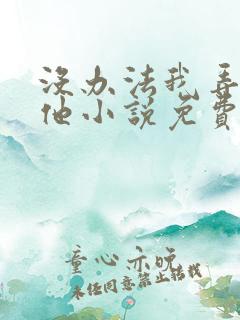 没办法我弄
他小说免费
童心亦晚
未经同意禁止转载